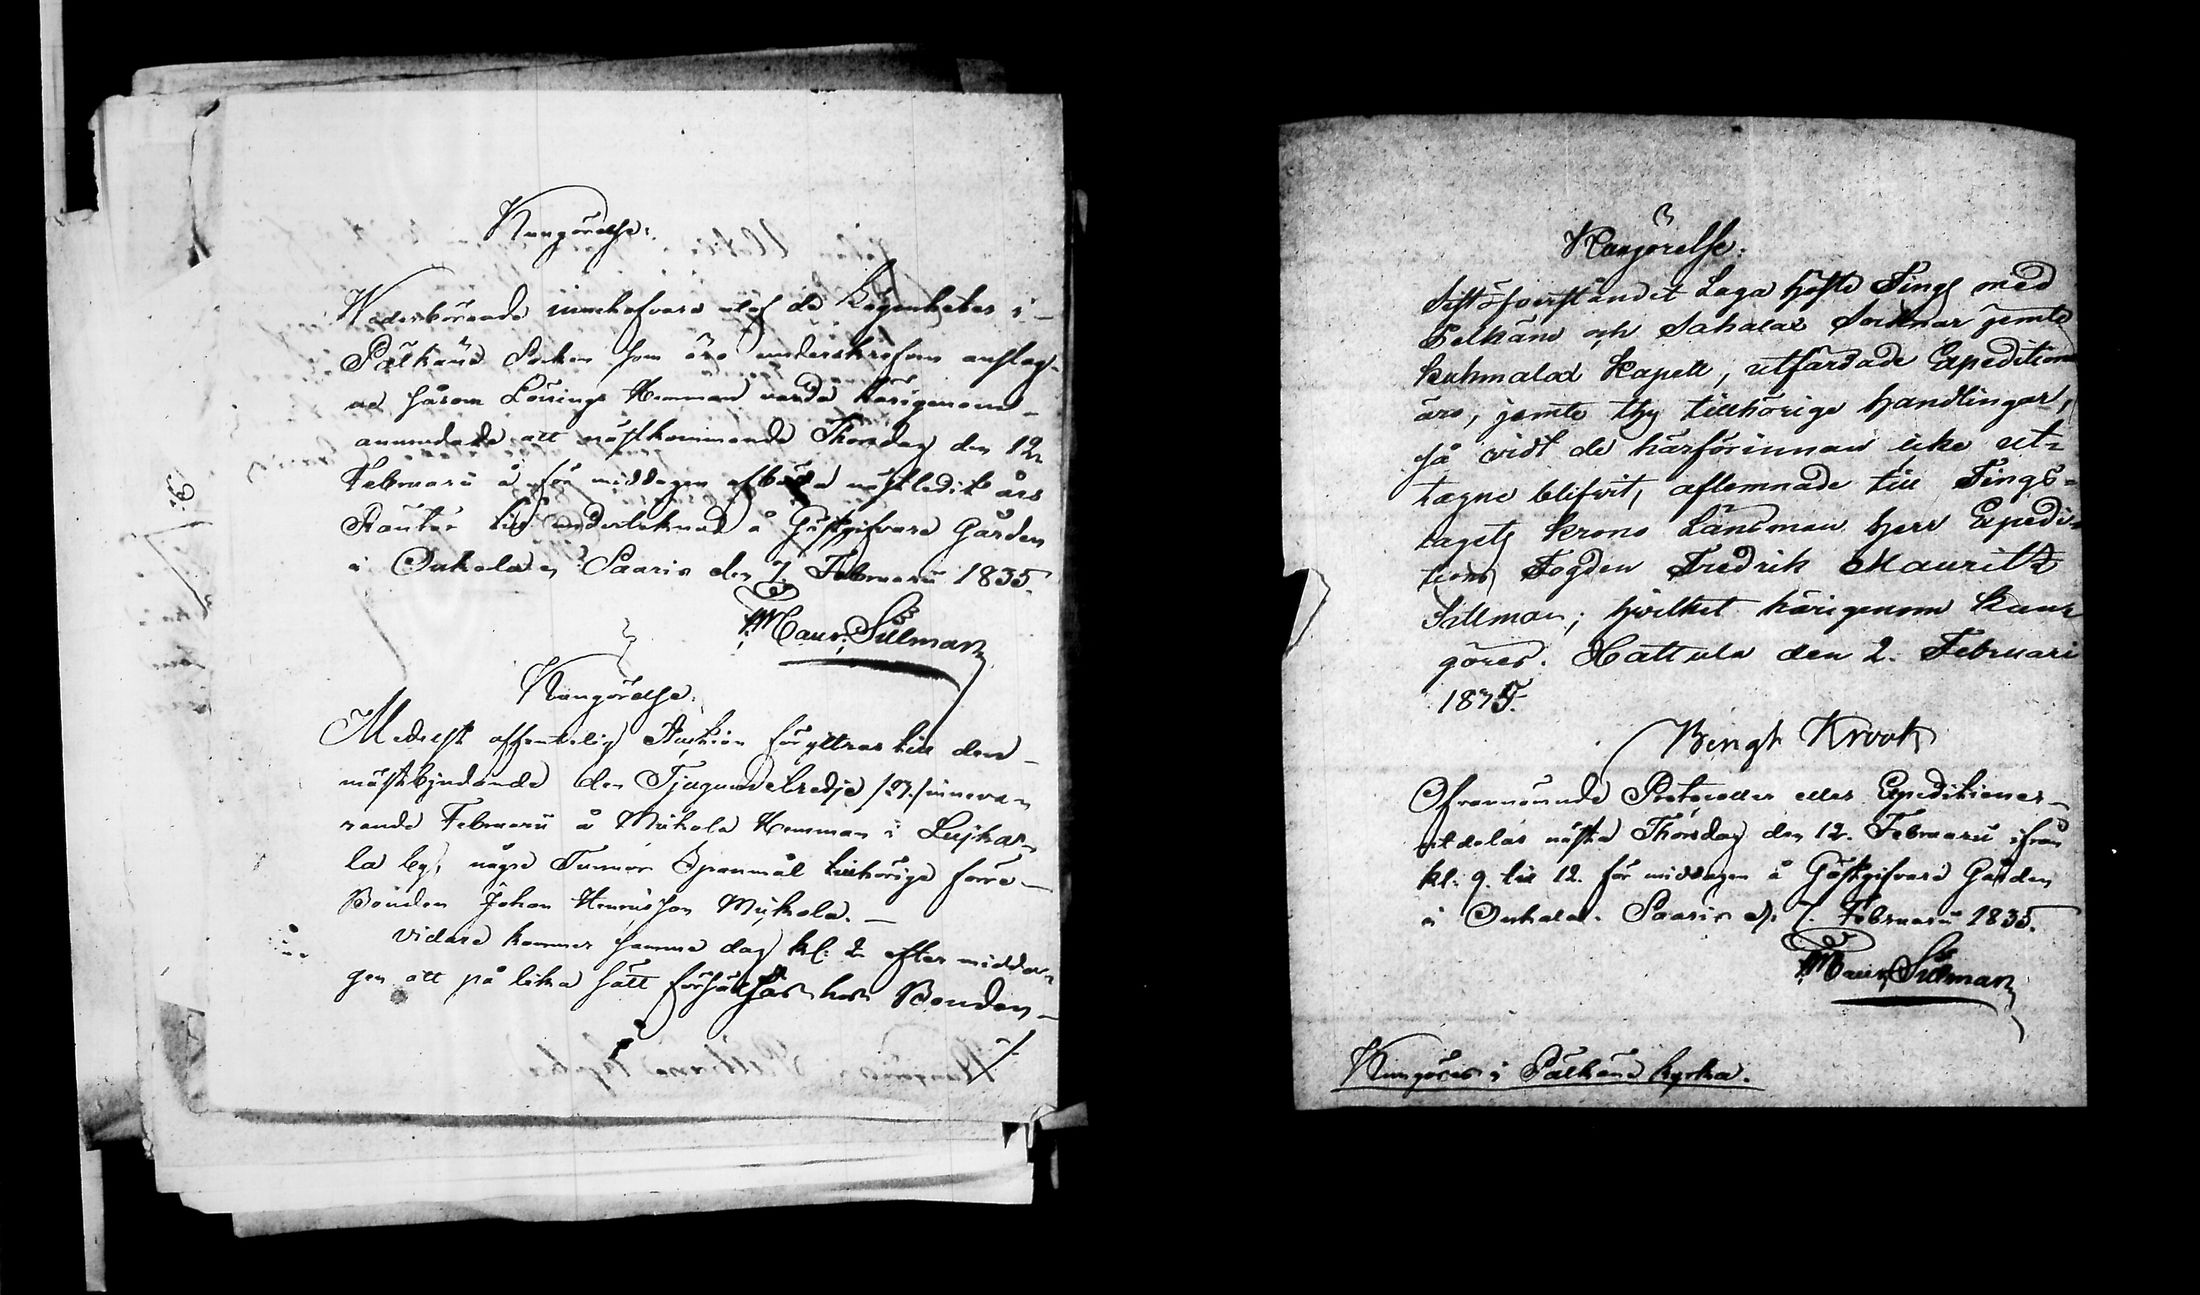 Kungörelse.
Wederbörande innehafvare utaf de Lägenheter i
Pälkäne Socken som äro underskrefne anslag-
ne såsom Lönings Hemman varda härigenom
anmodade att nästkommande Thorsdag den 12
Februarii å för middagen afbörda nästledit års
Räntor till undertecknad å Gästgifvare Gården
i Onkola. Saaris den 7. Februarii 1835.
Maur. Silman
Kungörelse.
Medelst offentelig Auction föryttras till den
mästbjudande den Tjugundetredje /23./ inneva-
rande Februarii å Mickola Hemman i Luika-
la by, någre Tunnor Spanmål tillhörige förre
Bonden Johan Henricsson Mickola.
Vidare kommer samma dag kl. 2 efter midda-
gen att på lika sätt försäljas hos Bonden
./.
Kungörelse.
Sistöfverståndit Laga Höste Tings med
Pelkäne och Sahalax Socknar jemte
Kuhmalax Kapell, utfärdade Expeditioner
äro, jemte thy tillhörige handlingar,
så vidt de härförinnan icke ut-
tagne blifvit, aflemnade till Tings-
lagets Krono Länsman Herr Expedi-
tions Fogden Fredrik Mauritz
Sillman; hvilket härigenom kun-
göres. Hattula den 2. Februari
1835.
Bengt Krook
Ofvannämnde Protocoller eller Expeditioner
utdelas nästa Thorsdag den 12. Februarii ifrån
kl. 9. till 12. för middagen å Gästgifvare Gården
i Onkola. Saaris d. 7. Februarii 1835.
Maur. Silman
Kungöres i Pälkäne kyrka.